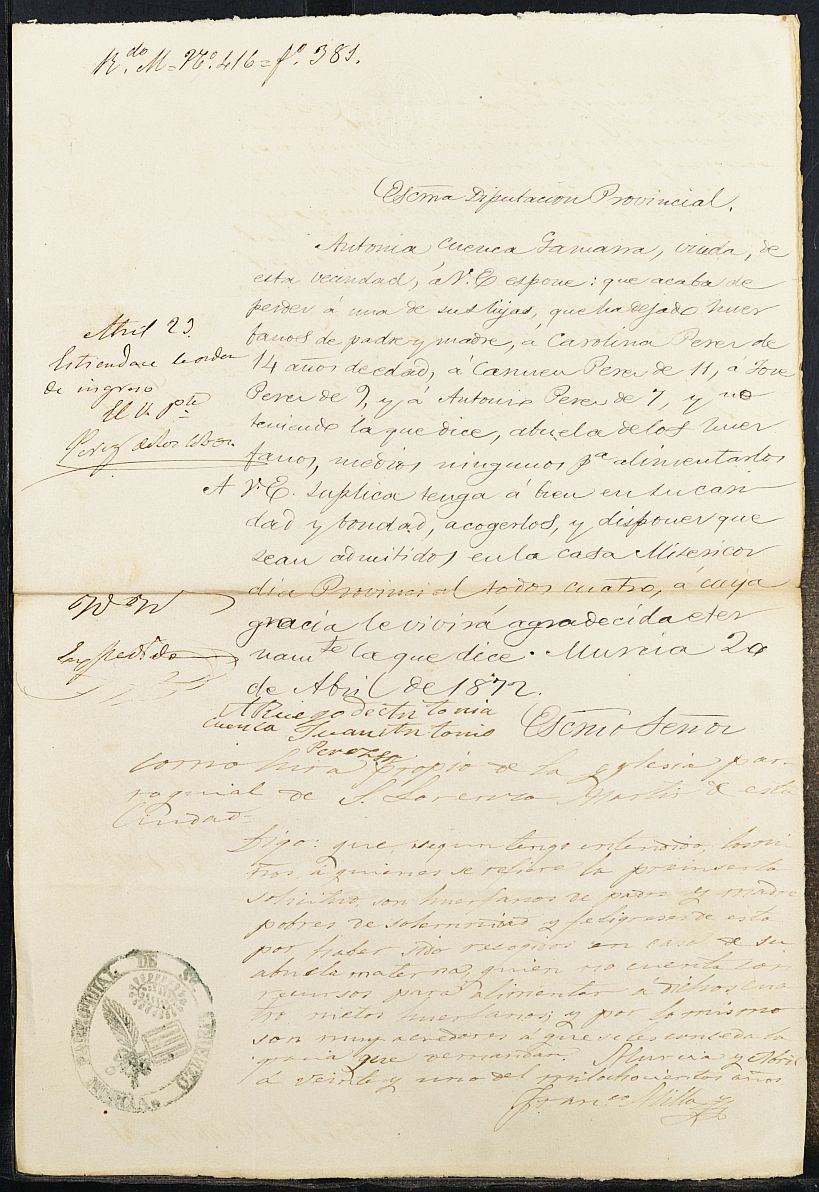 R.do M = N.o 416 = f.o 381.
Escma Diputacion Provincial.
Antonia Cuenca Gamarra, viuda, de
esta vecindad, á V. E espone: que acaba de
perder á una de sus hijas, que ha dejado huer
fanos de padre y madre, á Carolina Perez de
14 años de edad, á Carmen Perez de 11, á Jose
Perez de 9, y á Antonio Perez de 7, y no
teniendo la que dice, abuela de los huer
fanos, medios ningunos p.a alimentarlos
A V. E. suplica tenga á bien en su cari
dad y bondad, acogerlos, y disponer que
sean admitidos en la casa Misericor
dia Provincial todos cuatro, á cuya
gracia le vivirá agradecida eter
namte la que dice. Murcia 20
de Abril de 1872.
A Ruego de Antonia
Cuenca Juan Antonio
Escmo Señor
Abril 23.
Estiendase la orden
de ingreso
El V. Pte
Perez de los Cobos
Espedida
Como Cura propio de la Yglesia par
roquial de S. Lorenzo Martir de esta
Ciudad=
Digo: que segun tengo entendido, los ni
ños, á quienes se refiere la preinserta
solicitud, son huerfanos de padre y madre
pobres de solemnidad y feligreses de esta
por haber sido recogidos en casa de su
abuela materna, quien no cuenta con
recursos para alimentar a dichos cua
tro nietos huerfanos; y por lo mismo
son muy acredores á que se les conseda la
gracia que demandan. Murcia y Abril
á veinte y uno del mil ochocientos años
Franco Milla
PARROQUIAL DE S. LORENZO
MURCIA